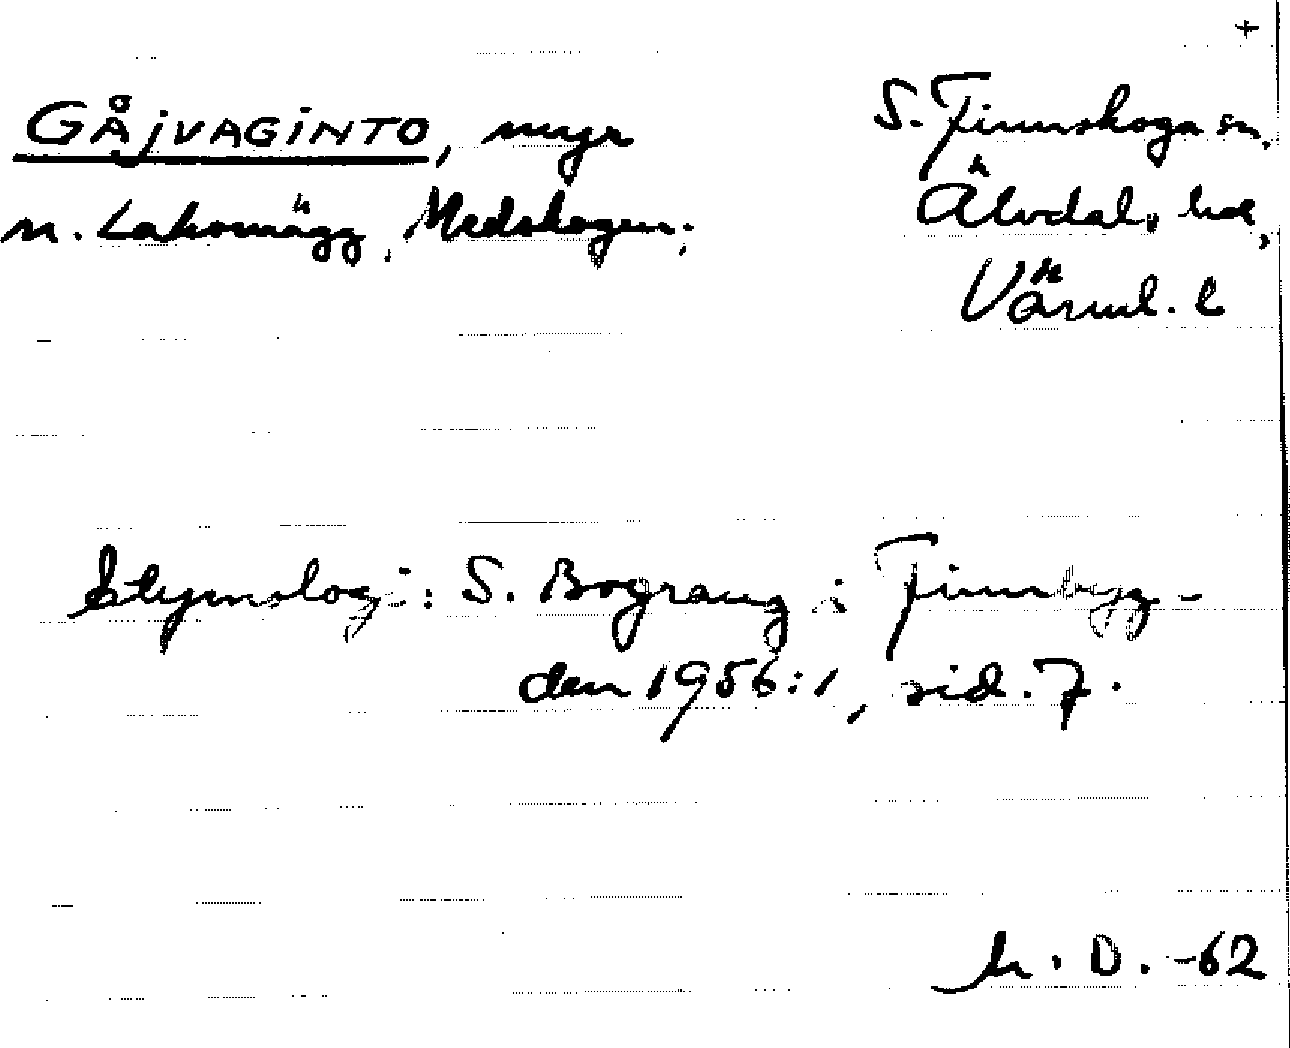 +
GÅJVAGINTO, myr
n. Lakomägg, Medskogen.
S. Finnskoga sn,
Älvdals hd,
Värml. l
Etymologi: S. Bograng i Finnbyg-
den 1956:1, sid. 7.
D. -62